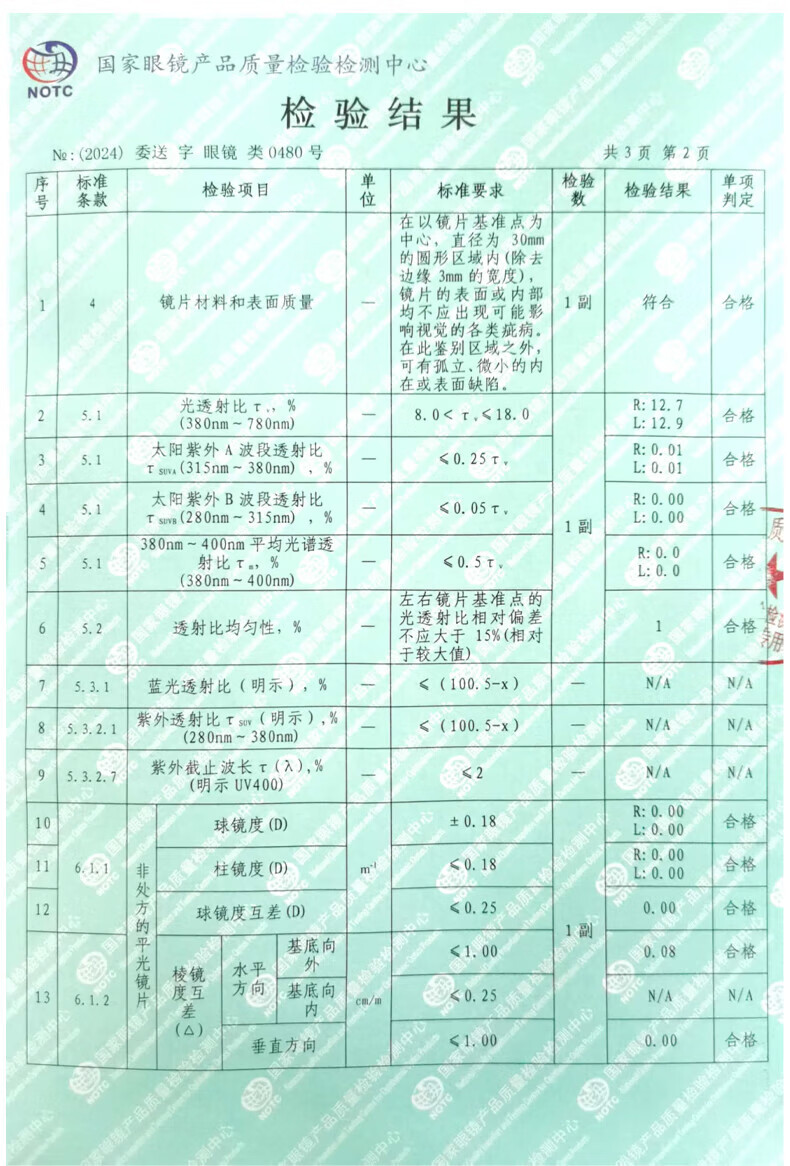 NOTC
国家眼镜产品质量检验检测中心
检验结果
№:(2024) 委送 字 眼镜 类 0480 号
共 3 页 第 2 页
序号 标准条款 检验项目 单位 标准要求 检验数 检验结果 单项判定
1 4 镜片材料和表面质量 — 在以镜片基准点为
中心，直径为 30mm
的圆形区域内(除去
边缘 3mm 的宽度)，
镜片的表面或内部
均不应出现可能影
响视觉的各类疵病。
在此鉴别区域之外，
可有孤立、微小的内
在或表面缺陷。
1 副 符合 合格
2 5.1 光透射比 τv，%
(380nm～780nm)
— 8.0< τv ≤18.0 R:12.7
L:12.9
合格
3 5.1 太阳紫外 A 波段透射比
τSUVA(315nm～380nm) ，%
— ≤0.25 τv R:0.01
L:0.01
合格
4 5.1 太阳紫外 B 波段透射比
τSUVB(280nm～315nm) ，%
— ≤0.05 τv R:0.00
L:0.00
合格
1 副
5 5.1 380nm～400nm 平均光谱透
射比 τm，%
(380nm～400nm)
— ≤0.5 τv R:0.0
L:0.0
合格
6 5.2 透射比均匀性，% — 左右镜片基准点的
光透射比相对偏差
不应大于 15%(相对
于较大值)
1 合格
7 5.3.1 蓝光透射比（明示），% — ≤（100.5-x） — N/A N/A
8 5.3.2.1 紫外透射比 τSUV（明示）,%
(280nm～380nm)
— ≤（100.5-x） N/A N/A
9 5.3.2.7 紫外截止波长 τ(λ),%
(明示 UV400)
— ≤2 — N/A N/A
10 球镜度(D) ±0.18 R:0.00
L:0.00
合格
11 6.1.1 非处方的平光镜片 柱镜度(D) m⁻¹ ≤0.18 R:0.00
L:0.00
合格
12 球镜度互差(D) ≤0.25 0.00 合格
1 副
13 6.1.2 棱镜度互差(△) 水平方向 基底向外 cm/m ≤1.00 0.08 合格
基底向内 ≤0.25 N/A N/A
垂直方向 ≤1.00 0.00 合格